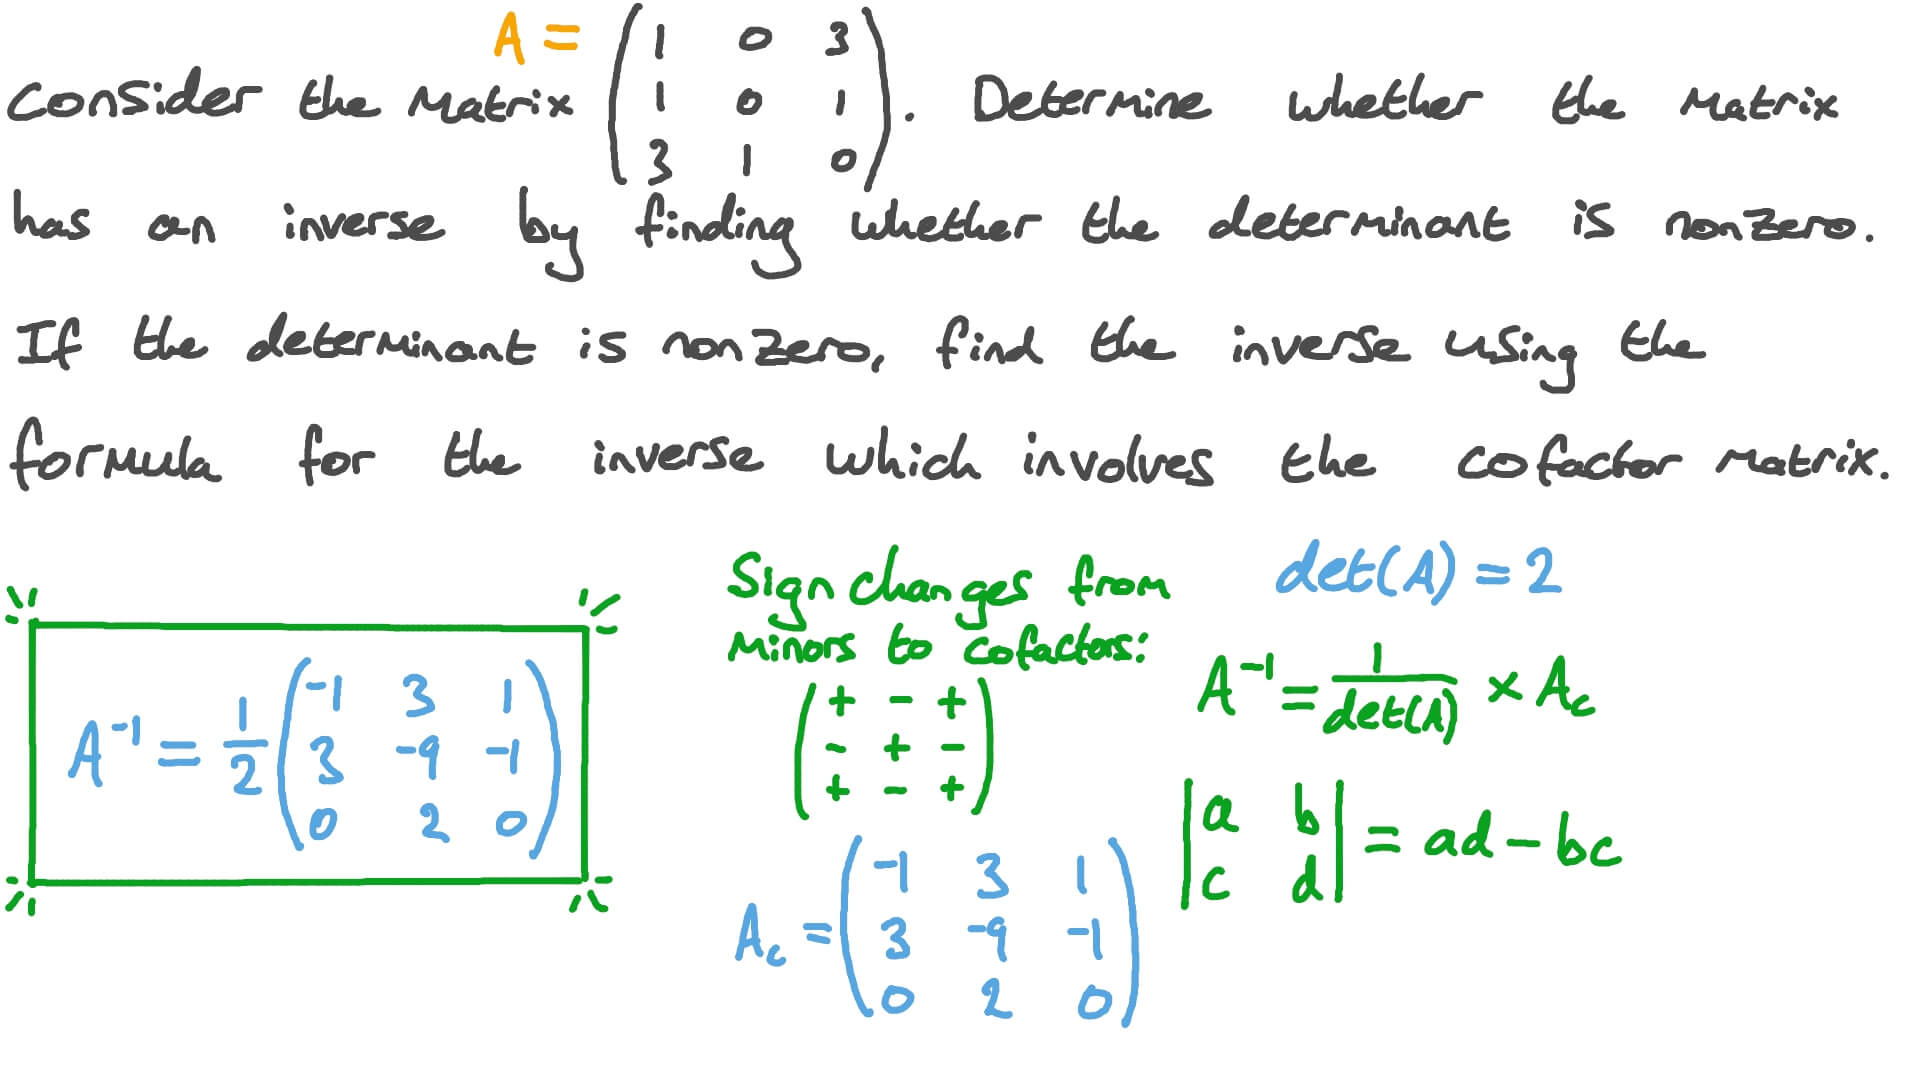 A = ( 1 0 3
Consider the Matrix 1 0 1 ). Determine whether the Matrix
3 1 0
has an inverse by finding whether the determinant is nonzero.
If the determinant is nonzero, find the inverse using the
formula for the inverse which involves the cofactor matrix.
A⁻¹ = 1/2 ( -1 3 1
3 -9 -1
0 2 0 )
Sign changes from
Minors to Cofactors:
( + - +
- + -
+ - + )
A_c = ( -1 3 1
3 -9 -1
0 2 0 )
det(A) = 2
A⁻¹ = 1/det(A) × A_c
| a b
c d | = ad - bc